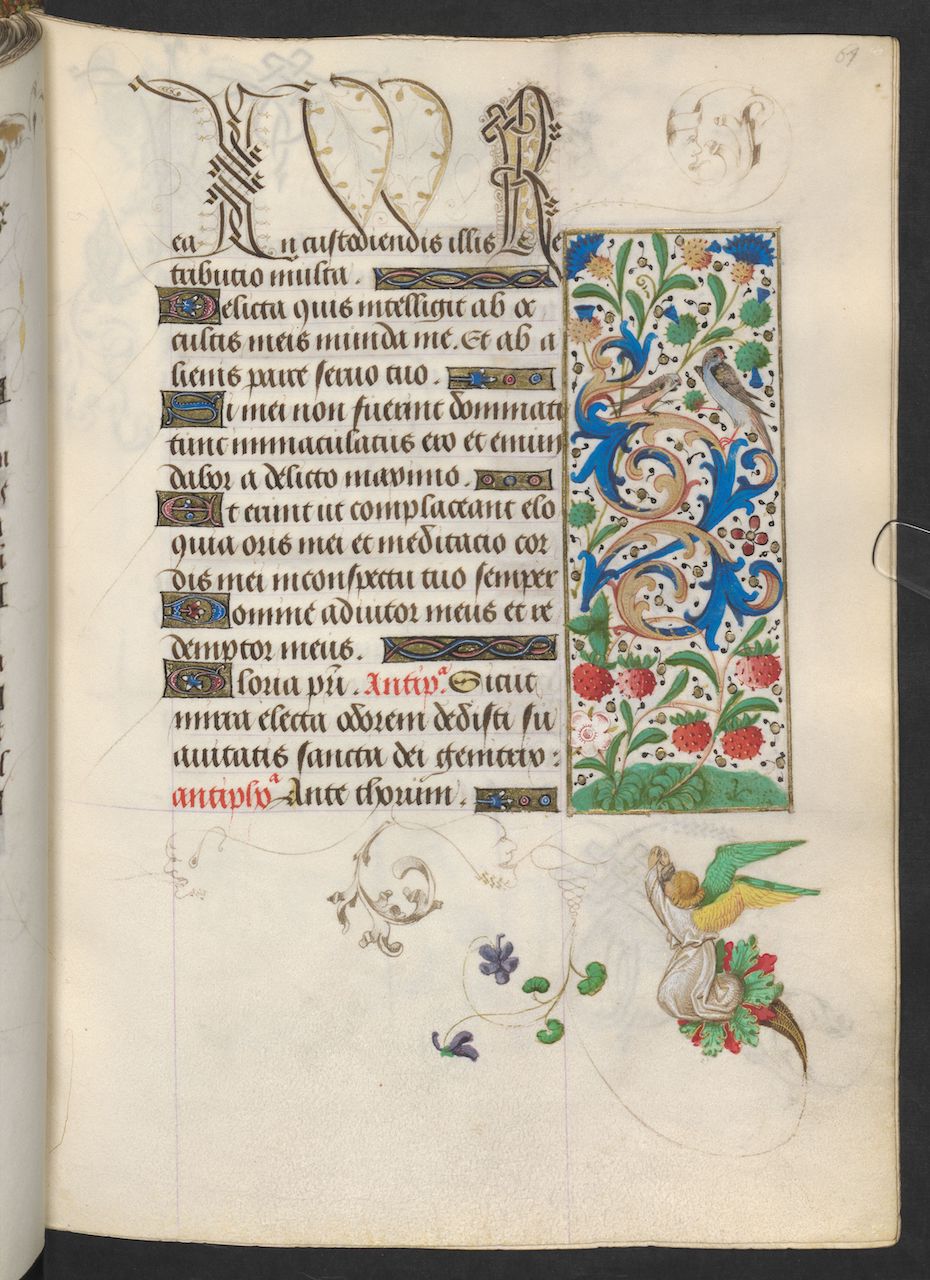 64
ea In custodiendis illis Re
tributio multa.
Delicta quis intelligit ab oc
cultis meis munda me. Et ab a
lienis parce seruo tuo.
Si mei non fuerint dominati
tunc immaculatus ero et emun
dabor a delicto maximo.
Et erunt ut complaceant elo
quia oris mei et meditacio cor
dis mei in conspectu tuo semper
Domine adiutor meus et re
demptor meus.
Gloria pri. Antipa. Sicut
mirra electa odorem dedisti su
auitatis sancta dei genitrix:
antipho a Ante thorum.